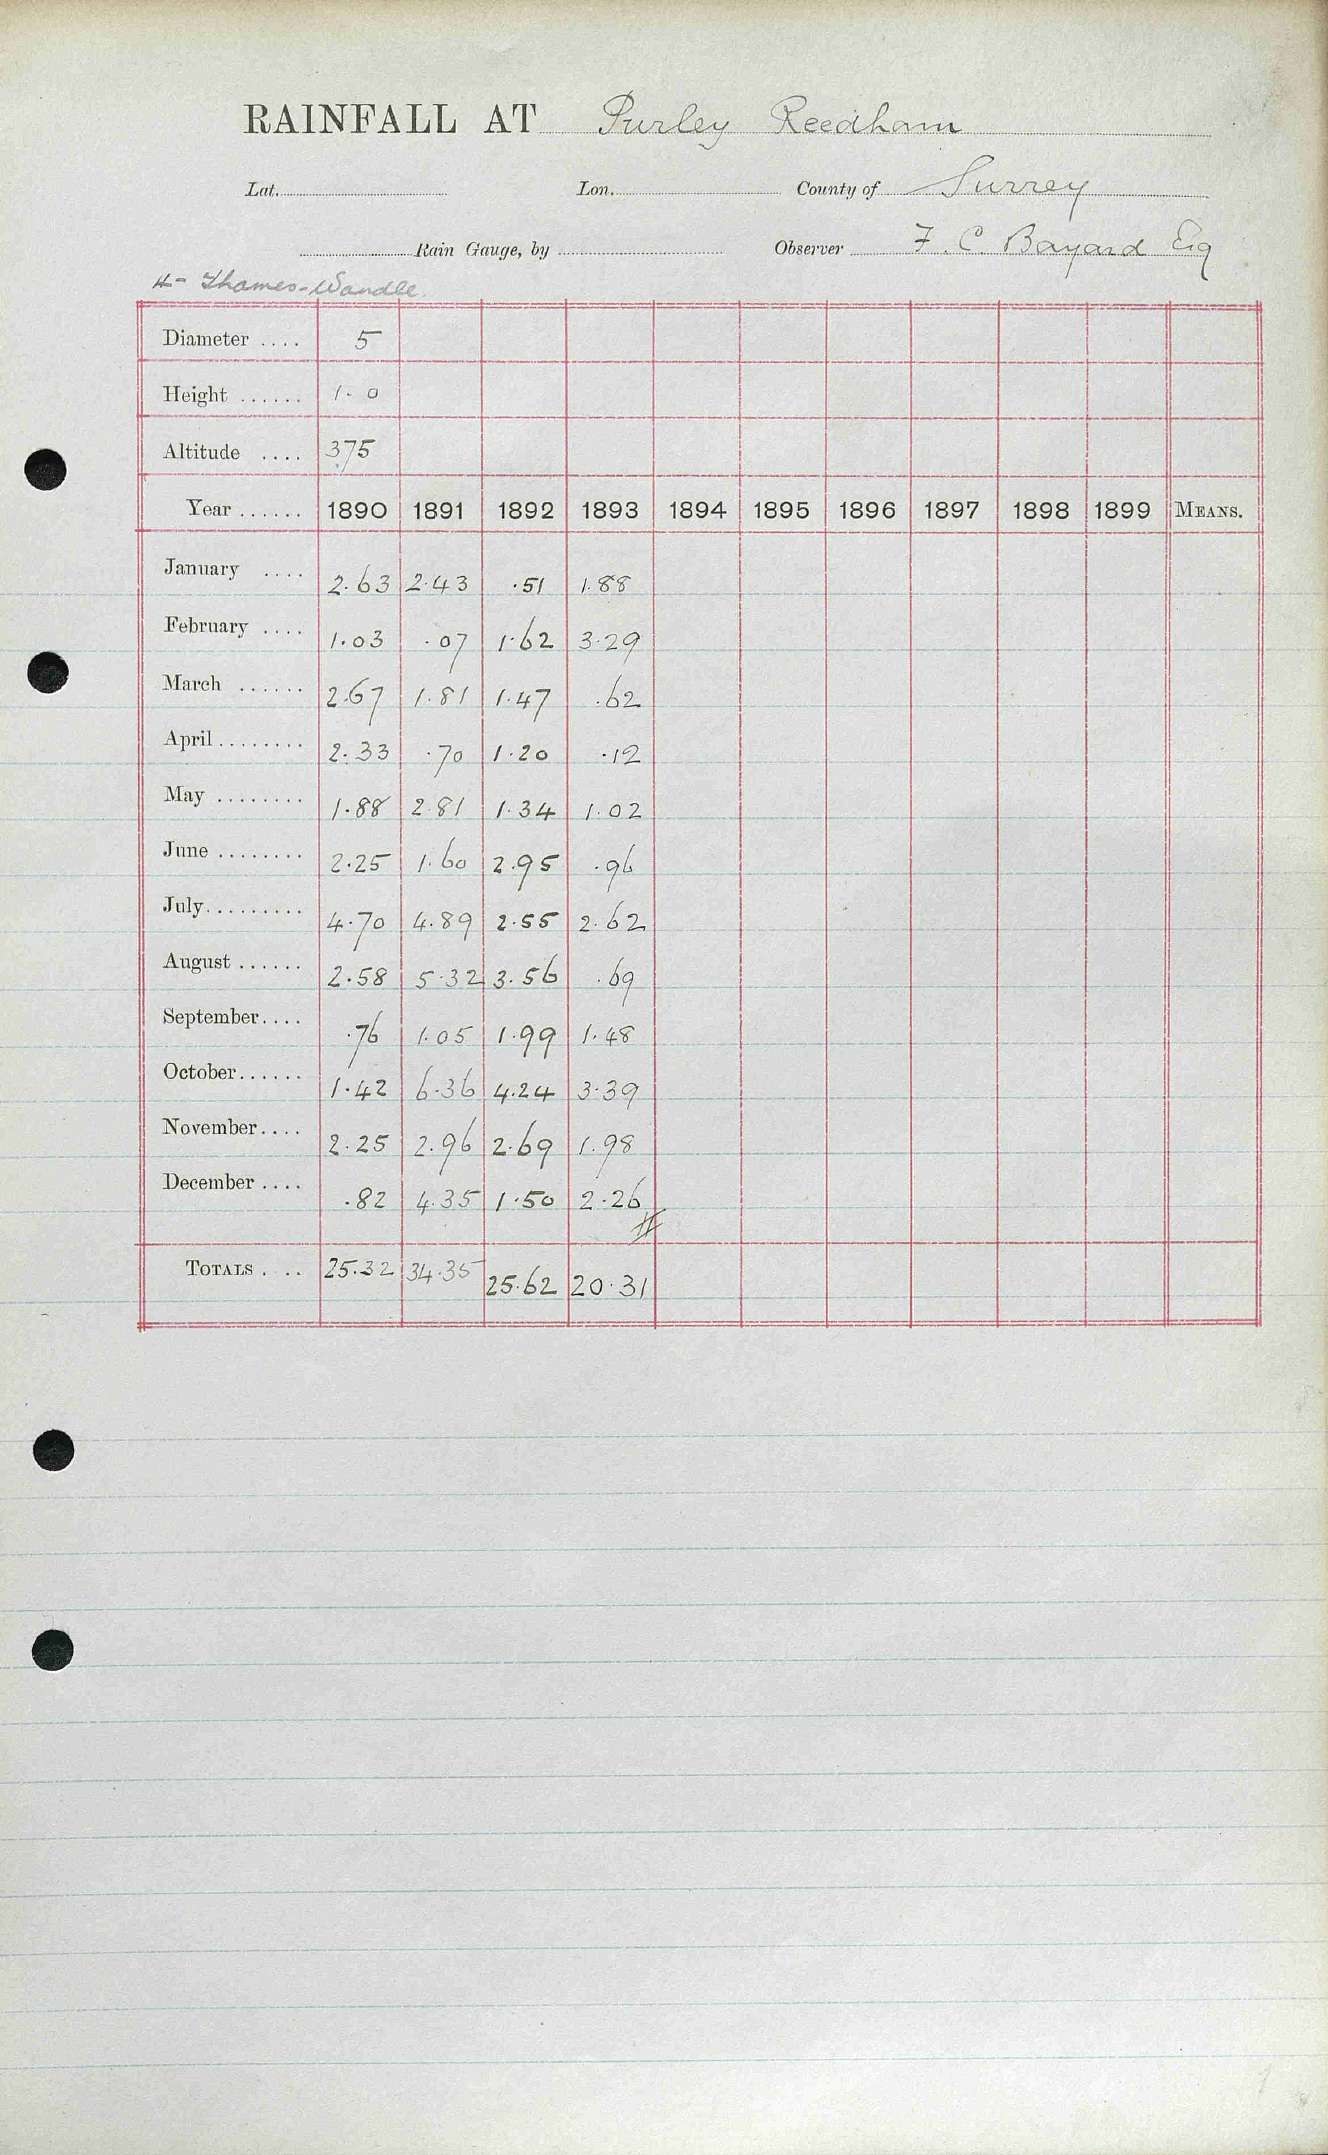 RAINFALL AT Purley Reedham
Lat. Lon. County of Surrey
Rain Gauge, by Observer F. C. Bayard Esq
4- Thames-Wandle.
Diameter .... 5
Height ...... 1.0
Altitude .... 375
Year ...... 1890 1891 1892 1893 1894 1895 1896 1897 1898 1899 MEANS.
January .... 2.63 2.43 .51 1.88
February .... 1.03 .07 1.62 3.29
March ...... 2.67 1.81 1.47 .62
April ........ 2.33 .70 1.20 .12
May ........ 1.88 2.81 1.34 1.02
June ........ 2.25 1.60 2.95 .96
July ......... 4.70 4.89 2.55 2.62
August ...... 2.58 5.32 3.56 .69
September .... .76 1.05 1.99 1.48
October ...... 1.42 6.36 4.24 3.39
November .... 2.25 2.96 2.69 1.98
December .... .82 4.35 1.50 2.26
TOTALS . .. 25.32 34.35 25.62 20.31